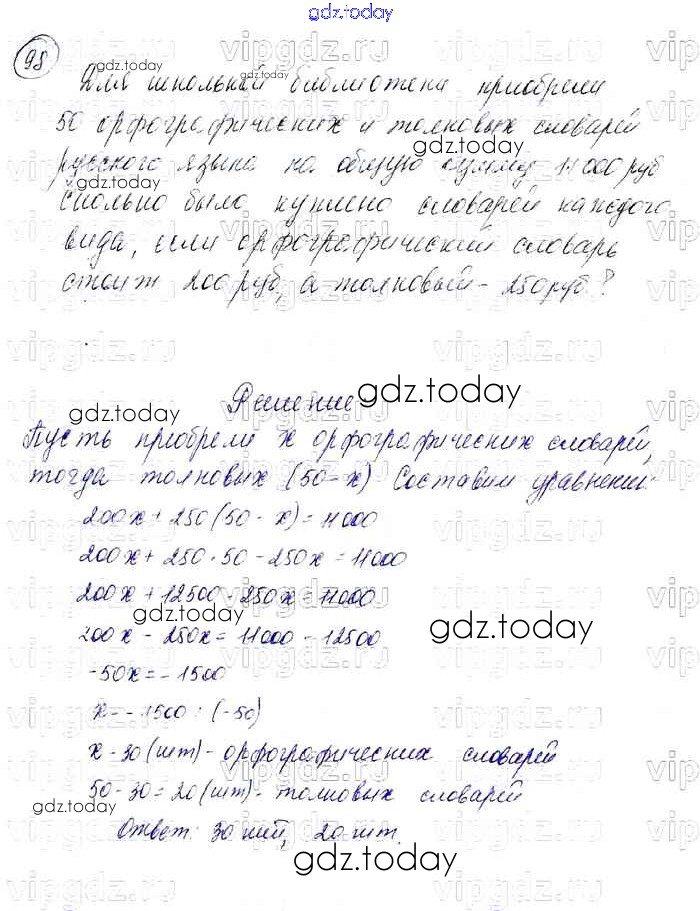 gdz.today
98
Для школьной библиотеки приобрели
50 орфографических и толковых словарей
русского языка на общую сумму 11000 руб
Сколько было куплено словарей каждого
вида, если орфографический словарь
стоит 200 руб, а толковый - 250 руб?
Решение
Пусть приобрели х орфографических словарей,
тогда толковых (50-х) Составим уравнение:
200х + 250(50-х) = 11000
200х + 250·50 - 250х = 11000
200х + 12500 - 250х = 11000
200х - 250х = 11000 - 12500
-50х = -1500
х = -1500 : (-50)
х - 30 (шт) - орфографических словарей
50-30 = 20 (шт) - толковых словарей
Ответ: 30 шт, 20 шт.